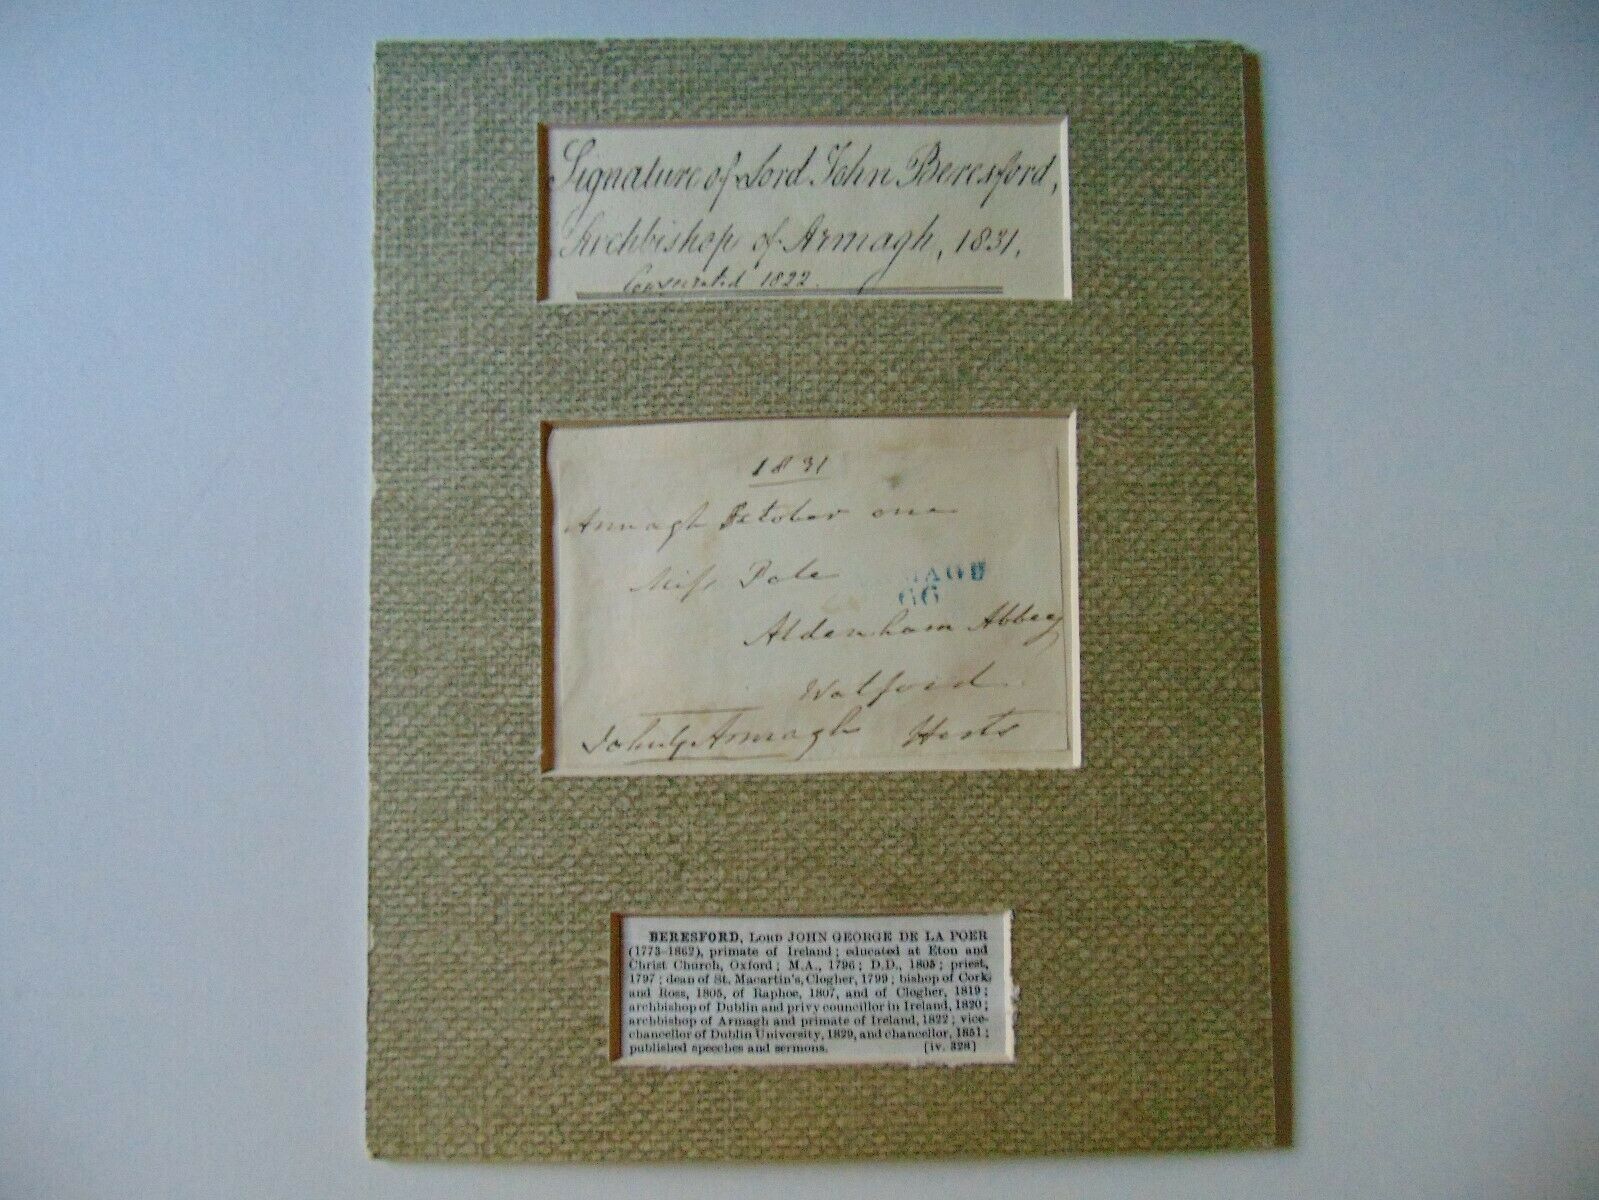 Signature of Lord John Beresford,
Archbishop of Armagh, 1831.
Consecrated 1822.
1831
Armagh October one
Miss Pole
MAGH
66
Aldenham Abbey
Watford
John G Armagh Herts
BERESFORD, LORD JOHN GEORGE DE LA POER
(1773-1862), primate of Ireland; educated at Eton and
Christ Church, Oxford; M.A., 1796; D.D., 1805; priest,
1797; dean of St. Macartin's, Clogher, 1799; bishop of Cork
and Ross, 1805, of Raphoe, 1807, and of Clogher, 1819;
archbishop of Dublin and privy councillor in Ireland, 1820;
archbishop of Armagh and primate of Ireland, 1822; vice-
chancellor of Dublin University, 1829, and chancellor, 1851;
published speeches and sermons. [iv. 328]